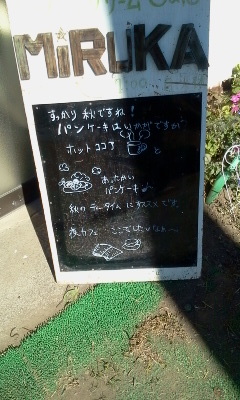 ーム Cafe
MiRUKA
すっかり 秋ですね!
パンケーキはいかがですか
ホットココア と
あったかい
パンケーキ♪
秋の ティータイム にオススメです。